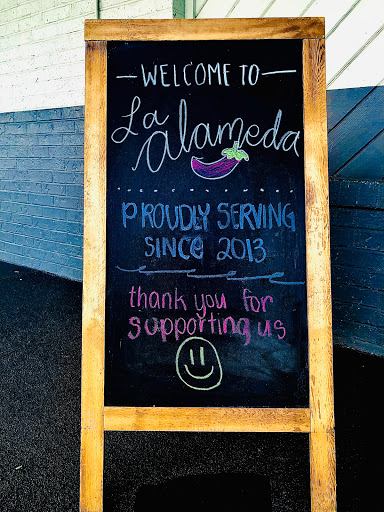 WELCOME TO
La
alameda
PROUDLY SERVING
SINCE 2013
thank you for
supporting us